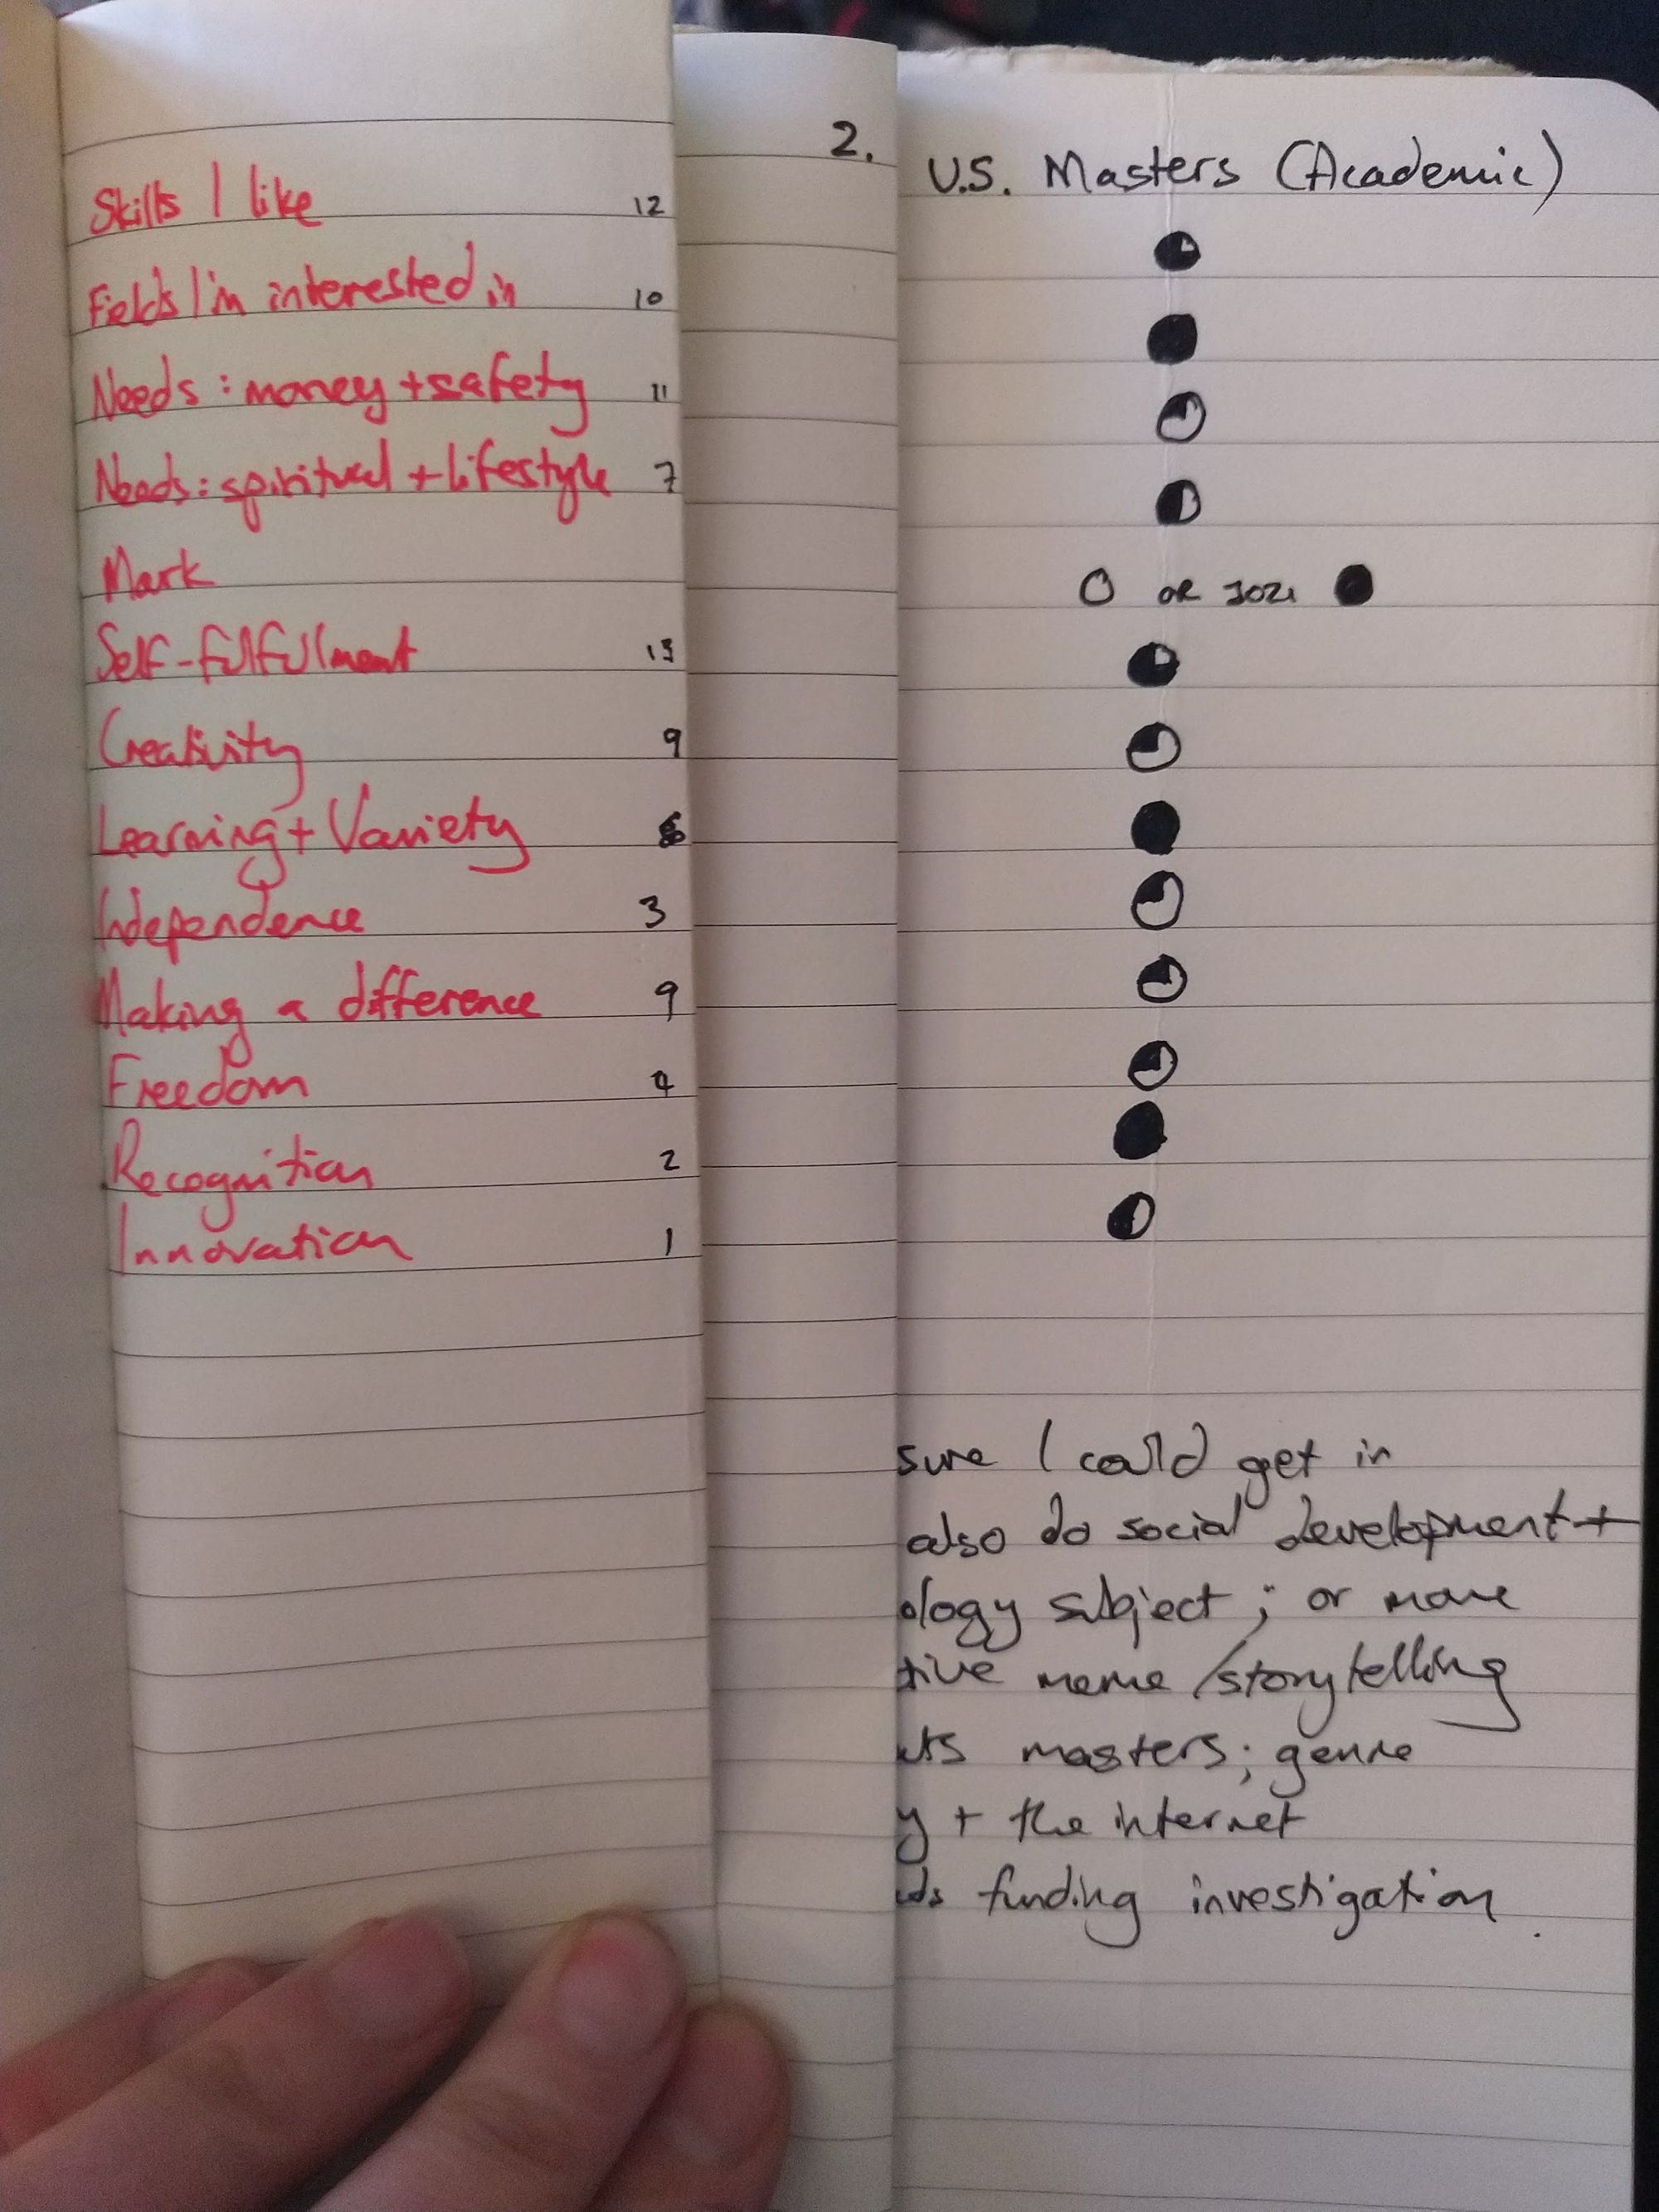 Skills I like 12
Fields I'm interested in 10
Needs: money + safety 11
Needs: spiritual + lifestyle 7
Mark
Self-fulfulment 13
Creativity 9
Learning + Variety
Independence 3
Making a difference 9
Freedom 4
Recognition 2
Innovation 1
2.
U.S. Masters (Academic)
OR JOZI
sure I could get in
also do social development +
ology subject; or more
tive meme/storytelling
masters; genre
y + the internet
ds funding investigation.